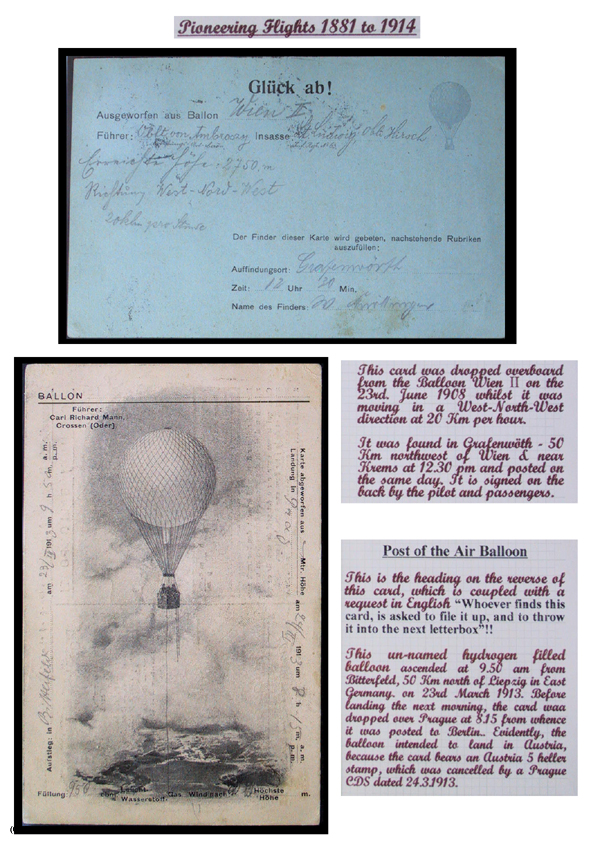 Pioneering Flights 1881 to 1914
Glück ab!
Ausgeworfen aus Ballon Wien II
Führer: Oblt. von Insasse Ludwig Oblt. Hirsch
Erreichte Höhe - 2750 m
Richtung West-Nord-West
20 klm pro Stunde
Der Finder dieser Karte wird gebeten, nachstehende Rubriken
auszufüllen:
Auffindungsort: Grafenwörth
Zeit: 12 Uhr Min.
Name des Finders:
BALLON
Führer:
Carl Richard Mann,
Crossen (Oder)
Aufstieg: in Bitterfeld am 23/III 1913 um 9 h 50 m. a. m.
p. m.
Karte abgeworfen aus Mtr. Höhe am 1913 um 8 h 15 m. a. m.
Landung in p. m.
Füllung: cbm Leucht Das Wind nach: Höchste m.
Wasserstoff Höhe
This card was dropped overboard
from the Balloon Wien II on the
23rd. June 1908 whilst it was
moving in a West-North-West
direction at 20 Km per hour.
It was found in Grafenwöth - 50
Km northwest of Wien & near
Krems at 12.30 pm and posted on
the same day. It is signed on the
back by the pilot and passengers.
Post of the Air Balloon
This is the heading on the reverse of
this card, which is coupled with a
request in English "Whoever finds this
card, is asked to file it up, and to throw
it into the next letterbox"!!
This un-named hydrogen filled
balloon ascended at 9.50 am from
Bitterfeld, 50 Km north of Liepzig in East
Germany. on 23rd March 1913. Before
landing the next morning, the card waa
dropped over Prague at 8.15 from whence
it was posted to Berlin.. Evidently, the
balloon intended to land in Austria,
because the card bears an Austria 5 heller
stamp, which was cancelled by a Prague
CDS dated 24.3.1913.